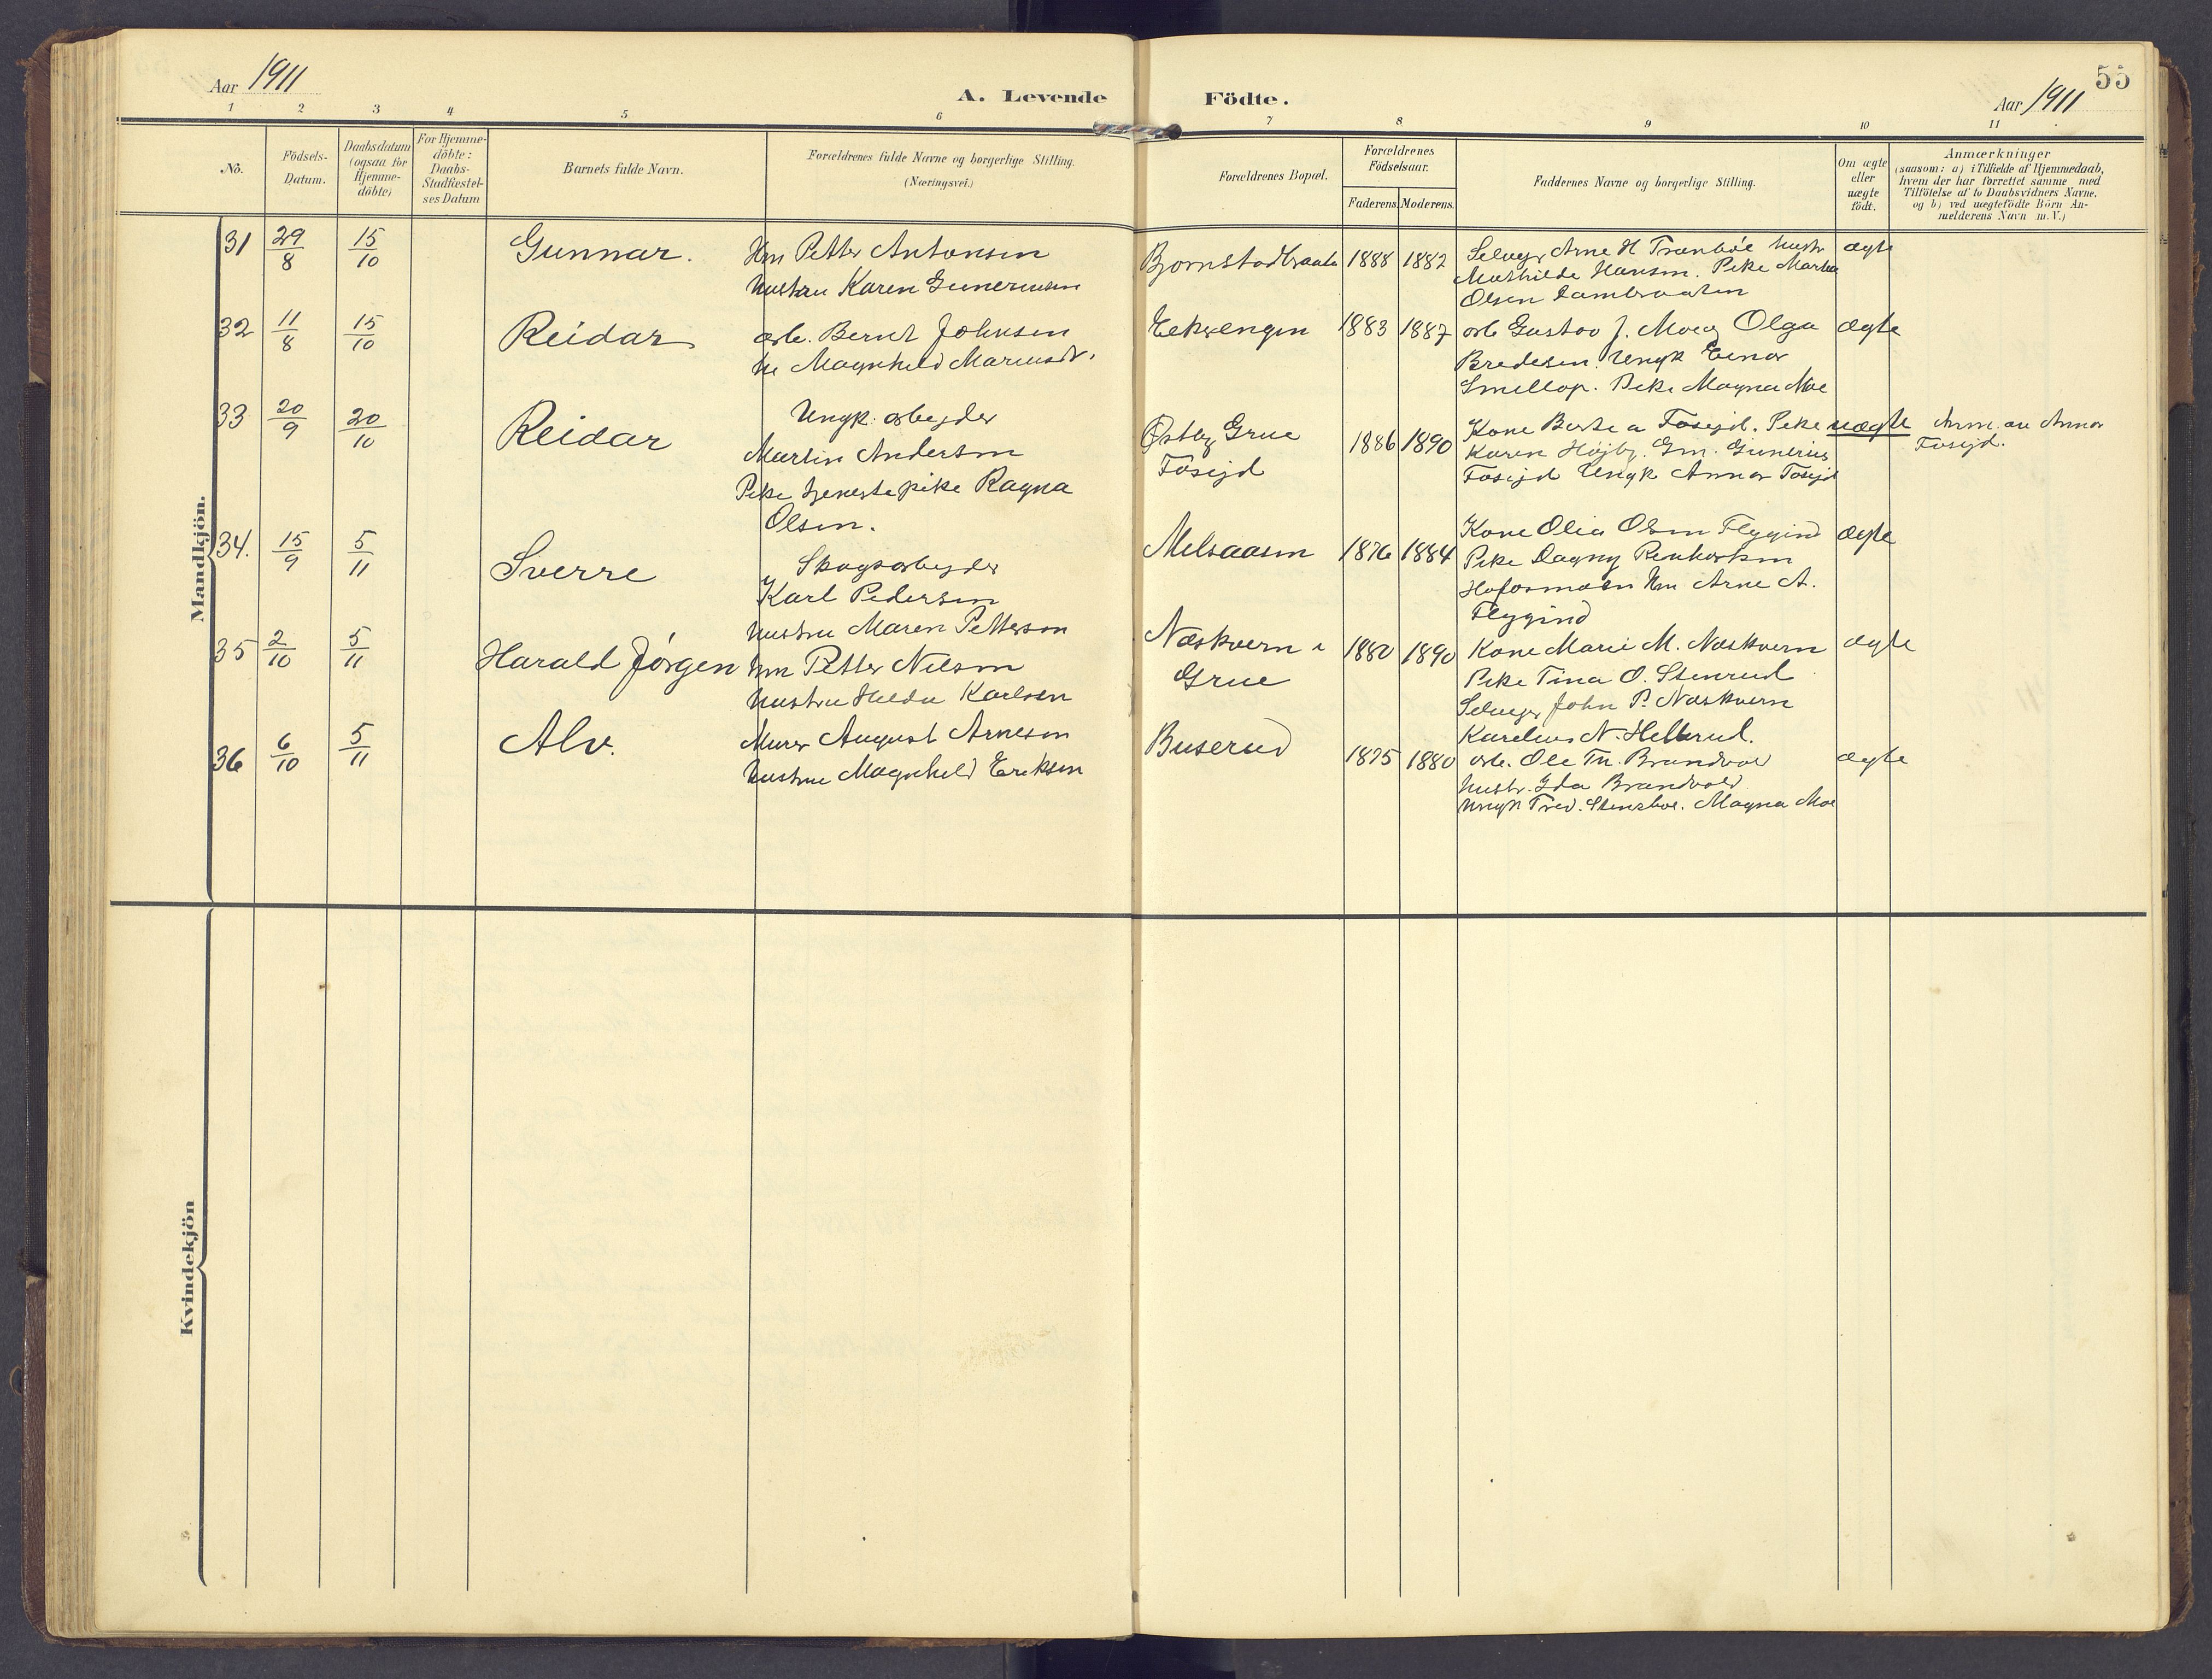 Aar 1911
A. Levende Födte.
55
Aar 1911
1 2 3 4 5 6 7 8 9 10 11
No.
Födsels-
Datum.
Daabsdatum
(ogsaa for
Hjemme-
döbte)
For Hjemme-
döbte:
Daabs-
Stadfæstel-
ses Datum
Barnets fulde Navn.
Forældrenes fulde Navne og borgerlige Stilling.
(Næringsvei.)
Forældrenes Bopæl.
Forældrenes
Födselsaar.
Faderens. Moderens.
Faddernes Navne og borgerlige Stilling.
Om ægte
eller
uægte
födt.
Anmærkninger
(saasom: a) i Tilfælde af Hjemmedaab,
hvem der har forrettet samme med
Tilföielse af to Daabsvidners Navne,
og b) ved uægtefödte Börn An-
melderens Navn m.V.)
Mandkjön.
31 29/8 15/10 Gunnar.
Petter Antonsen
Hustru Karen
Bjørnstadbraate 1888 1882
Selveger Arne H Tranbøl Hustr
Mathilde Hansen. Pike Martha
Olsen
ægte
32 11/8 15/10 Reidar
arb. Bernt Johnsen
Magnhild
1883 1887
arb Gustav J. Moe Olga
Bredesen Ungk Einar
Smellop. Pike Magna Moe
ægte
33 20/9 20/10 Reidar
Ungk. arbejder
Martin Andersen
Pike tjenestepike Ragna
Olsen.
Østby Grue
Fosejd
1886 1890
Kone Berte a Fosejd. Pike
Karen Højby. Gm. Gunerius
Fosejd Ungk Annar Fosejd
uægte
Anm. av Annar
Fosejd.
34. 15/9 5/11 Sverre
Skogsarbejder
Karl Pedersen
Hustru Maren Petterson
Melsaasen 1876 1884
Kone Olia Olsen Flygind
Pike Dagny
Hofosmoen Arne A.
Flygind
ægte
35 2/10 5/11 Harald Jørgen
Petter Nilsen
Hustru Hilda Karlsen
Næskvern i
Grue
1880 1890
Kone Marie M. Næskvern
Pike Tina O. Stenrud
Selveger John P. Næskvern
Karelius N. Hellerud.
ægte
36 6/10 5/11 Alv.
Murer August Arneson
Hustru Magnhild Eriksen
Buserud 1875 1880
arb. Ole Th. Brandvol
Hustr. Ida Brandvold
Ungk Fred. Magna Moe
ægte
Kvindekjön